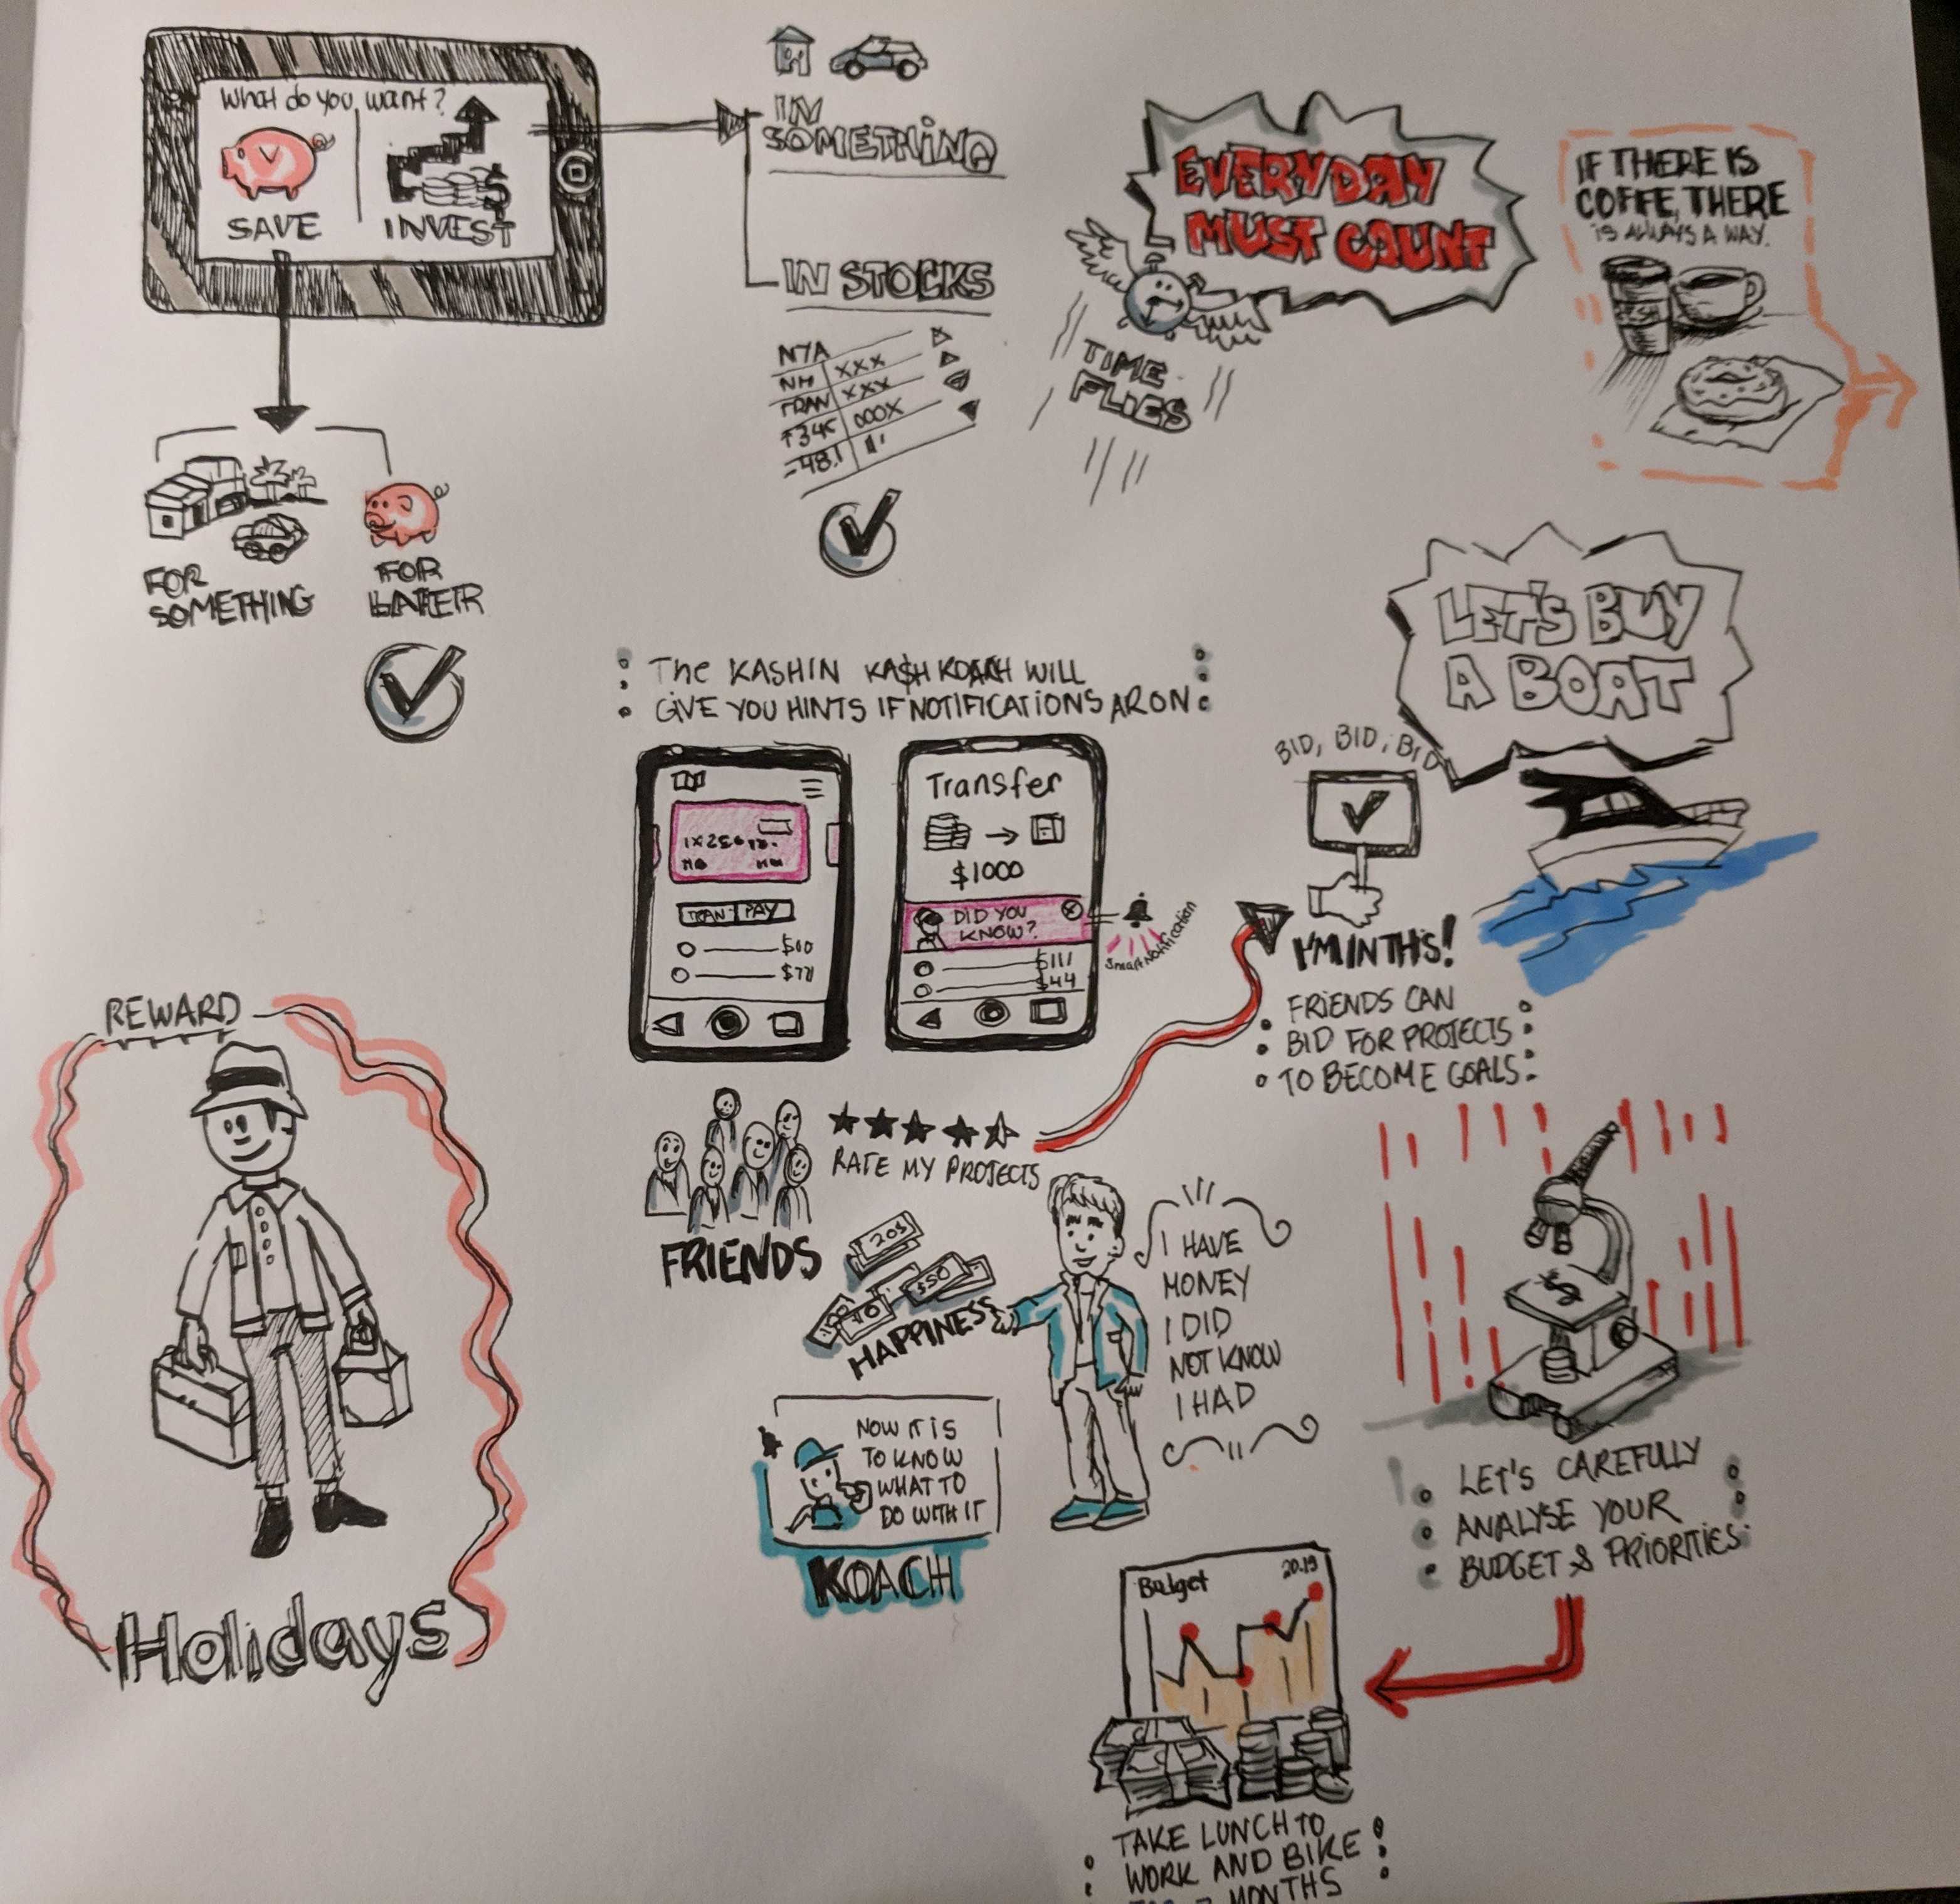 What do you want?
SAVE
INVEST
$
IN
SOMETHING
IN STOCKS
NYA
NH XXX
TRAN XXX
+345 000X
-48.1
FOR
SOMETHING
FOR
LATER
EVERYDAY
MUST COUNT
TIME
FLIES
IF THERE IS
COFFE, THERE
IS ALWAYS A WAY.
LET'S BUY
A BOAT
The KASHIN KA$H KOACH WILL
GIVE YOU HINTS IF NOTIFICATIONS AR ON
TRAN PAY
$00
$78
Transfer
$1000
DID YOU
KNOW?
$111
$44
Smart Notification
BID, BID, BID
I'M IN THIS!
FRIENDS CAN
BID FOR PROJECTS
TO BECOME GOALS
REWARD
Holidays
RATE MY PROJECTS
FRIENDS
20$
$50
HAPPINESS
I HAVE
MONEY
I DID
NOT KNOW
I HAD
NOW IT IS
TO KNOW
WHAT TO
DO WITH IT
KOACH
$
LET'S CAREFULLY
ANALYSE YOUR
BUDGET & PRIORITIES
Budget 20.19
TAKE LUNCH TO
WORK AND BIKE
MONTHS